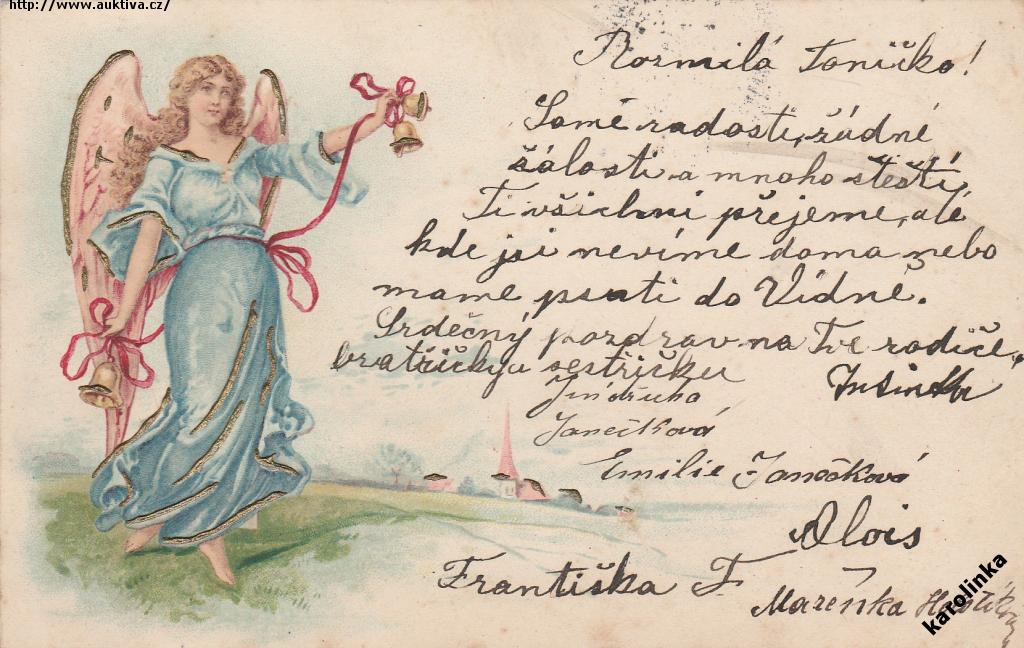 http://www.auktiva.cz/
Rozmilá Toničko!
Samé radosti, žádné
žálosti a mnoho štěstí,
Ti všichni přejeme, ale
kde jsi nevíme doma nebo
mame psati do Vídně.
Srdečný pozdrav na Tvé rodiče,
bratříčky a sestřičku
Jindřiška
Janečková
Emilie Janečková
Alois
Františka F.
Mařenka
karolinka